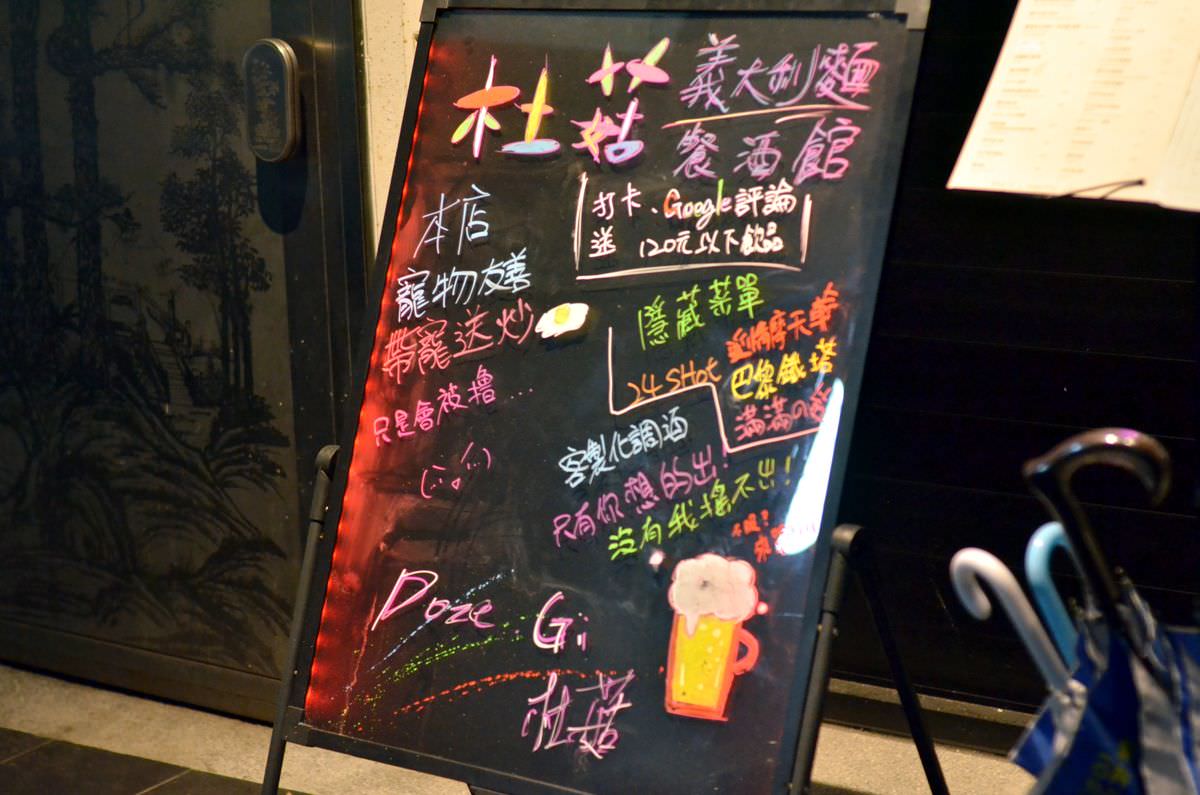 杜菇
義大利麵
餐酒館
打卡、Google評論
送 120元以下飲品
本店
寵物友善
帶寵送炒
只是會被擼...
隱藏菜單
24 SHOT
摩天輪
巴黎鐵塔
滿滿の
客製化調酒
只有你想的出!
沒有我搖不出!
Doze Gi
杜菇